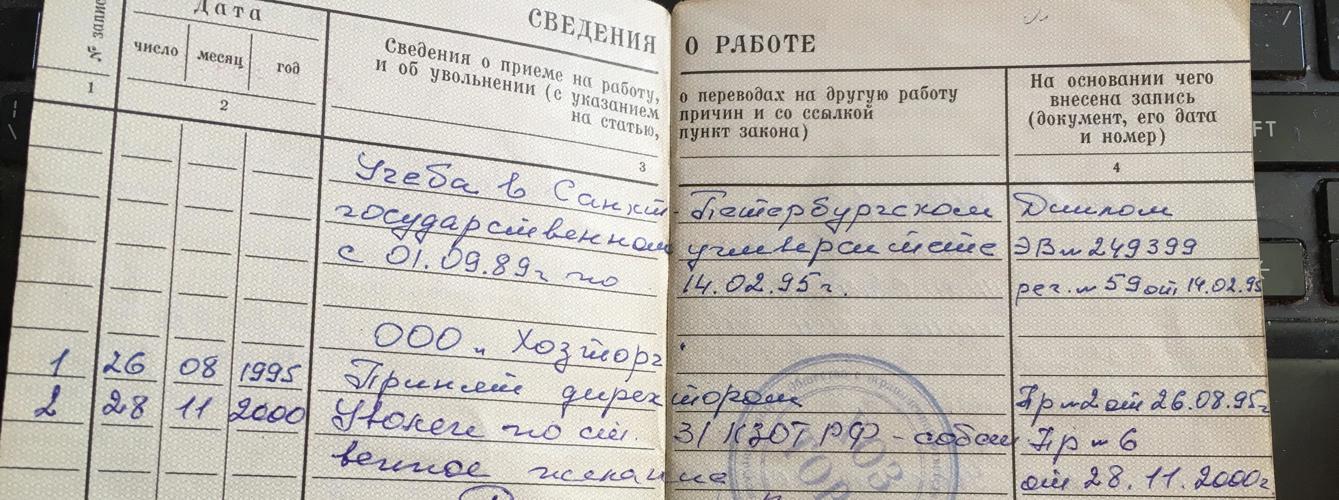 СВЕДЕНИЯ О РАБОТЕ
Дата
число месяц год
Сведения о приеме на работу, о переводах на другую работу
и об увольнении (с указанием причин и со ссылкой
на статью, пункт закона)
На основании чего
внесена запись
(документ, его дата
и номер)
1 2 3 4
Учеба в Санкт-Петербургском Диплом
государственном университете ЭВ № 249399
с 01.09.89г по 14.02.95г. рег. № 59 от 14.02.95
ООО "Хозторг"
1 26 08 1995 Принят директором Пр №2 от 26.08.95г
2 28 11 2000 Уволен по ст. 31 КЗОТ РФ - собст Пр № 6
венное желание от 28.11.2000г